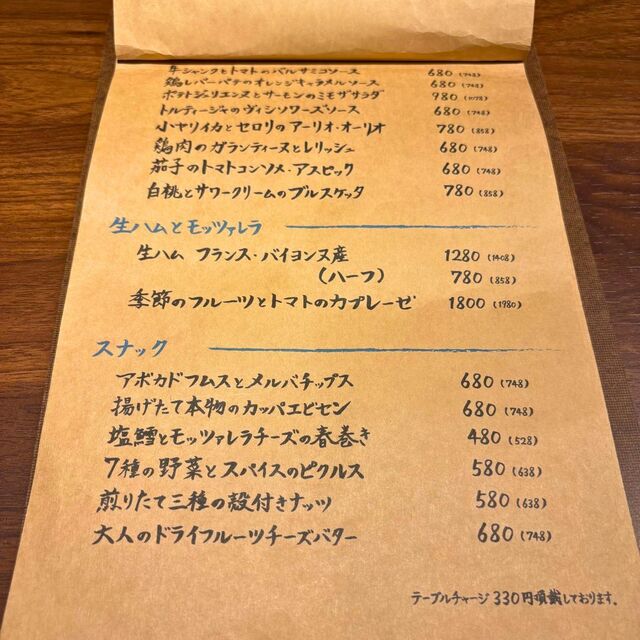 牛シャンクとトマトのバルサミコソース 680(748)
鶏レバーパテのオレンジキャラメルソース 680(748)
ポテトジュリエンヌとサーモンのミモザサラダ 980(1078)
トルティージャのヴィシソワーズソース 680(748)
小ヤリイカとセロリのアーリオ・オーリオ 780(858)
鶏肉のガランティーヌとレリッシュ 680(748)
茄子のトマトコンソメ・アスピック 680(748)
白桃とサワークリームのブルスケッタ 780(858)
生ハムとモッツァレラ
生ハム フランス・バイヨンヌ産 1280(1408)
(ハーフ) 780(858)
季節のフルーツとトマトのカプレーゼ 1800(1980)
スナック
アボカドフムスとメルバチップス 680(748)
揚げたて本物のカッパエビセン 680(748)
塩鱈とモッツァレラチーズの春巻き 480(528)
7種の野菜とスパイスのピクルス 580(638)
煎りたて三種の殻付きナッツ 580(638)
大人のドライフルーツチーズバター 680(748)
テーブルチャージ330円頂戴しております。